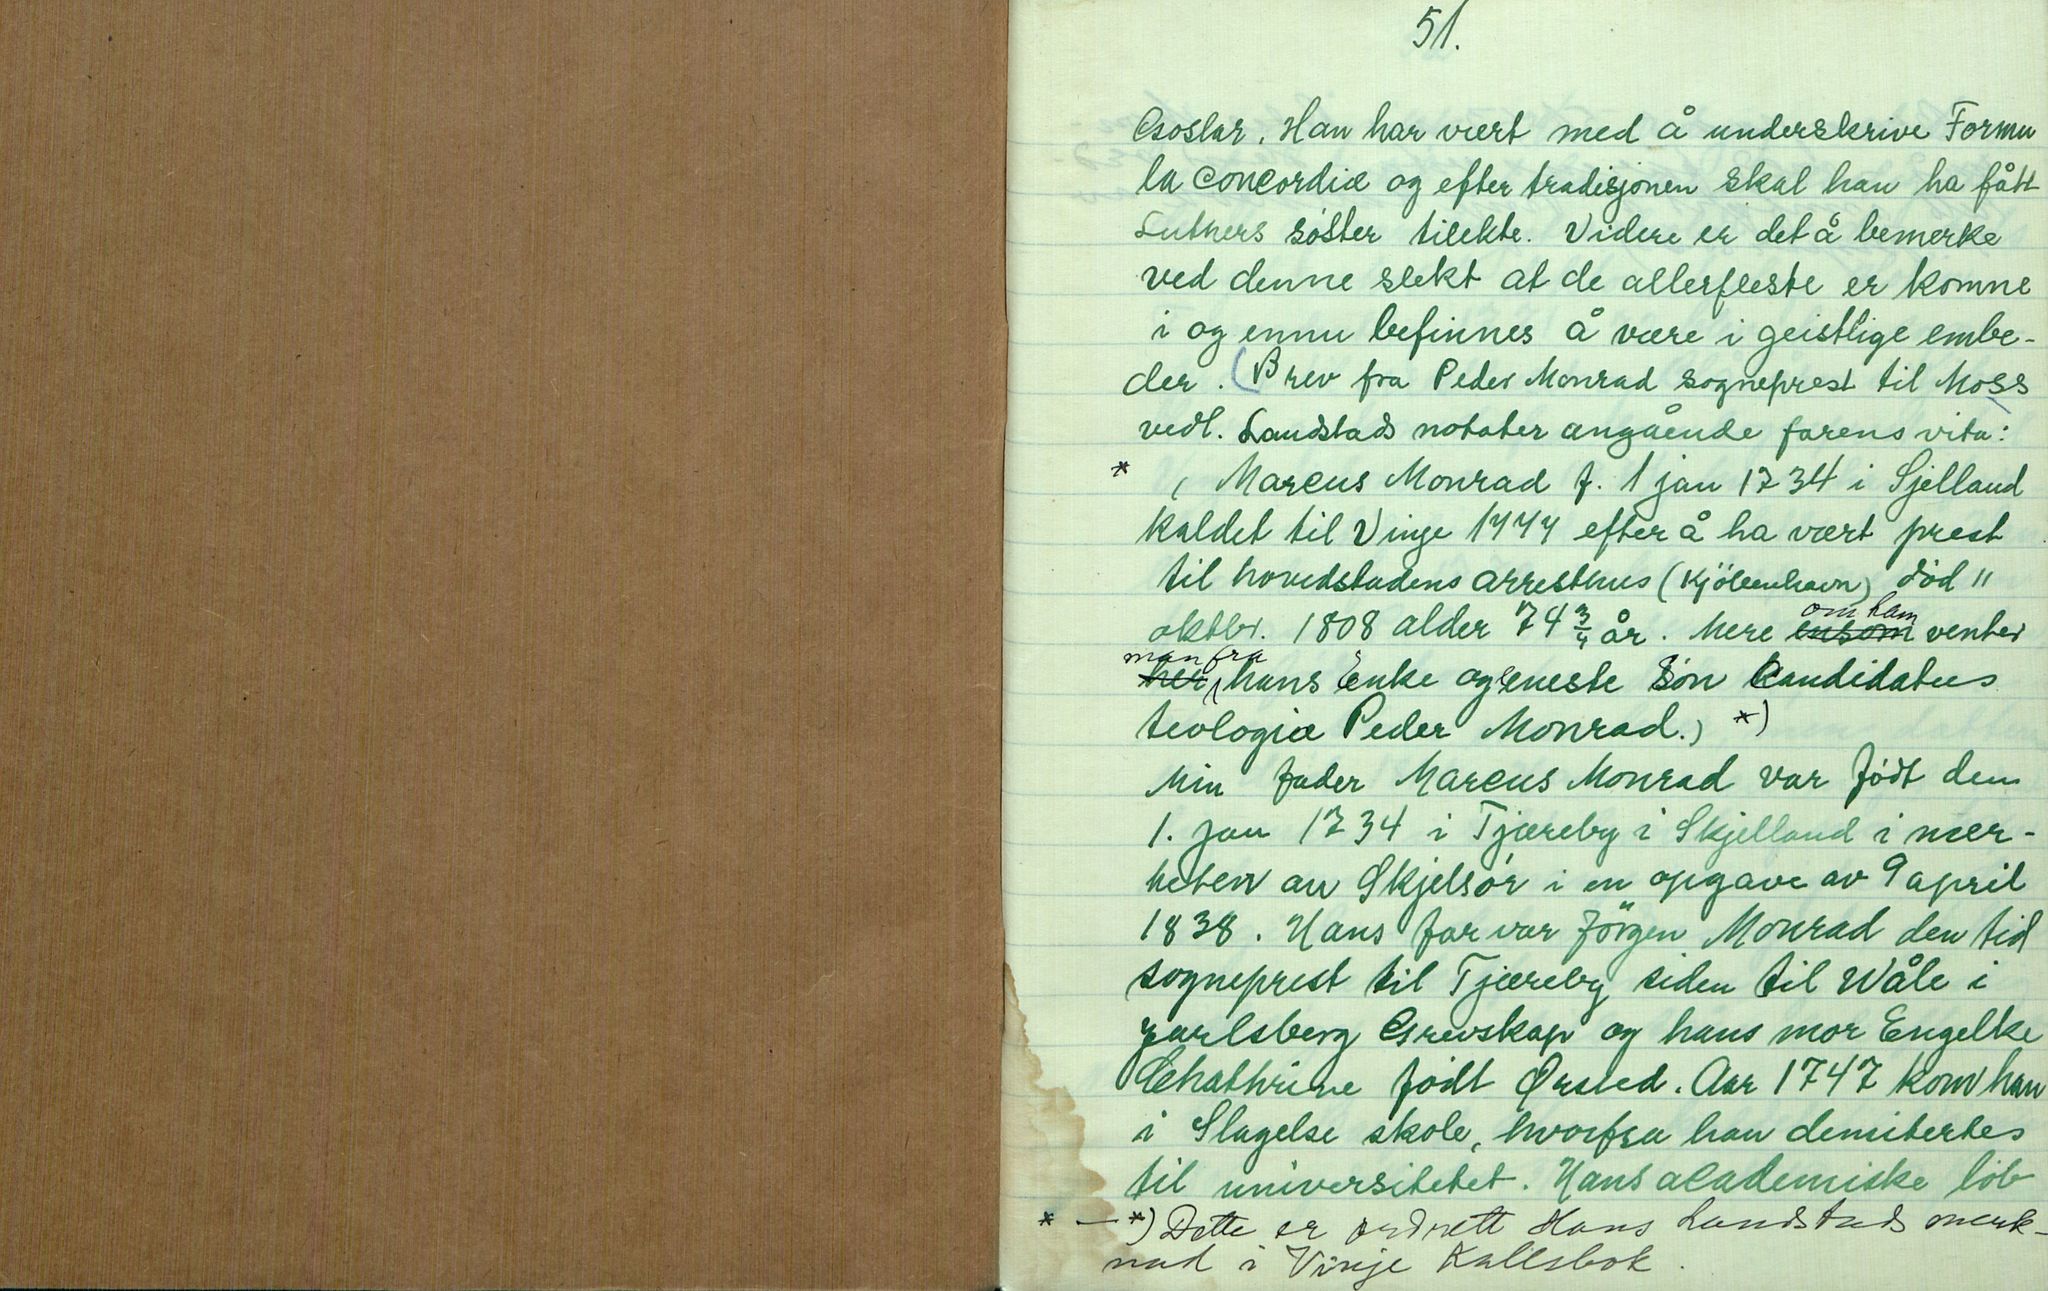 51.
Goslar. Han har vært med å underskrive Formu
la Concordiæ og efter tradisjonen skal han ha fått
Luthers søster tilekte. Videre er det å bemerke
ved denne slekt at de allerfleste er komne
i og ennu befinnes å være i geistlige embe-
der. (Brev fra Peder Monrad sogneprest til Moss
vedl. Landstads notater angående farens vita:
* ( Marcus Monrad f. 1 jan 1734 i Sjelland
kaldet til Vinje 1777 efter å ha vært prest
til hovedstadens arresthus (Kjöbenhavn) död 11
oktbr. 1808 alder 74 3/4 år. Mere om ham venter
man fra hans Enke og eneste Søn Candidatus
teologiæ Peder Monrad.) *)
Min fader Marcus Monrad var født den
1. jan 1734 i Tjæreby i Skjelland i nær-
heten av Skjelsør i en opgave av 9 april
1838. Hans far var Jörgen Monrad den tid
sogneprest til Tjæreby siden til Wåle i
Jarlsberg Grevskap og hans mor Engelke
Chathrine født Ørsted. Aar 1747 kom han
i Slagelse skole, hvorfra han demitertes
til universitetet. Hans academiske löb
* — *) Dette er ordrett Hans Landstads merk-
nad i Vinje Kallsbok.